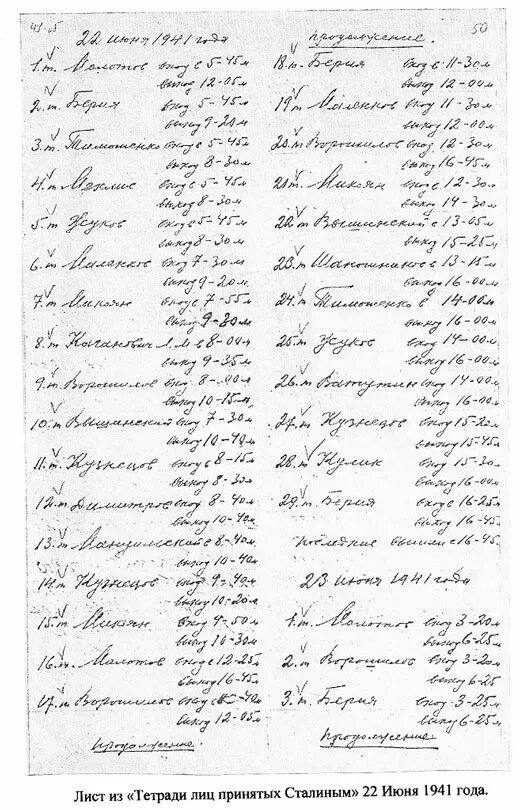 50
22 июня 1941 года
1. т. Молотов вход в 5-45м
выход 12-05м
2. т. Берия вход 5-45м
выход 9-20м
3. т. Тимошенко вход в 5-45м
выход 8-30м
4. т. Мехлис вход в 5-45м
выход 8-30м
5. т. Жуков вход в 5-45м
выход 8-30м
6. т. Маленков вход 7-30м
выход 9-20м
7. т. Микоян вход в 7-55м
выход 9-30м
8. т. Каганович Л.М в 8-00м
выход 9-35м
9. т. Ворошилов вход 8-00м
выход 10-15м
10. т. Вышинский вход 7-30м
выход 10-40м
11. т. Кузнецов вход в 8-15м
выход 8-30м
12. т. Димитров вход 8-40м
выход 10-40м
13. т. Мануильский в 8-40м
выход 10-40м
14. т. Кузнецов вход 9-40м
выход 10-20м
15. т. Микоян вход 9-50м
выход 10-30м
16. т. Молотов вход в 12-25м
выход 16-45м
17. т. Ворошилов вход в 40м
выход 12-05м
продолжение
продолжение.
18. т. Берия вход в 11-30м
выход 12-00м
19. т. Маленков вход 11-30м
выход 12-00м
20. т. Ворошилов вход 12-30м
выход 16-45м
21. т. Микоян вход в 12-30м
выход 14-30м
22. т. Вышинский в 13-05м
выход 15-25м
23. т. Шапошников в 13-15м
выход 16-00м
24. т. Тимошенко в 14-00м
выход 16-00м
25. т. Жуков вход 14-00м
выход 16-00м
26. т. Ватутин вход 14-00м
выход 16-00м
27. т. Кузнецов вход 15-20м
выход 15-45м
28. т. Кулик вход 15-30м
выход 16-00м
29. т. Берия вход в 16-25м
выход 16-45м
Последние вышли в 16-45
23 июня 1941 года
1. т. Молотов вход 3-20м
выход 6-25м
2. т. Ворошилов вход 3-20м
выход 6-25
3. т. Берия вход 3-25м
выход 6-25м
продолжение
Лист из «Тетради лиц принятых Сталиным» 22 Июня 1941 года.